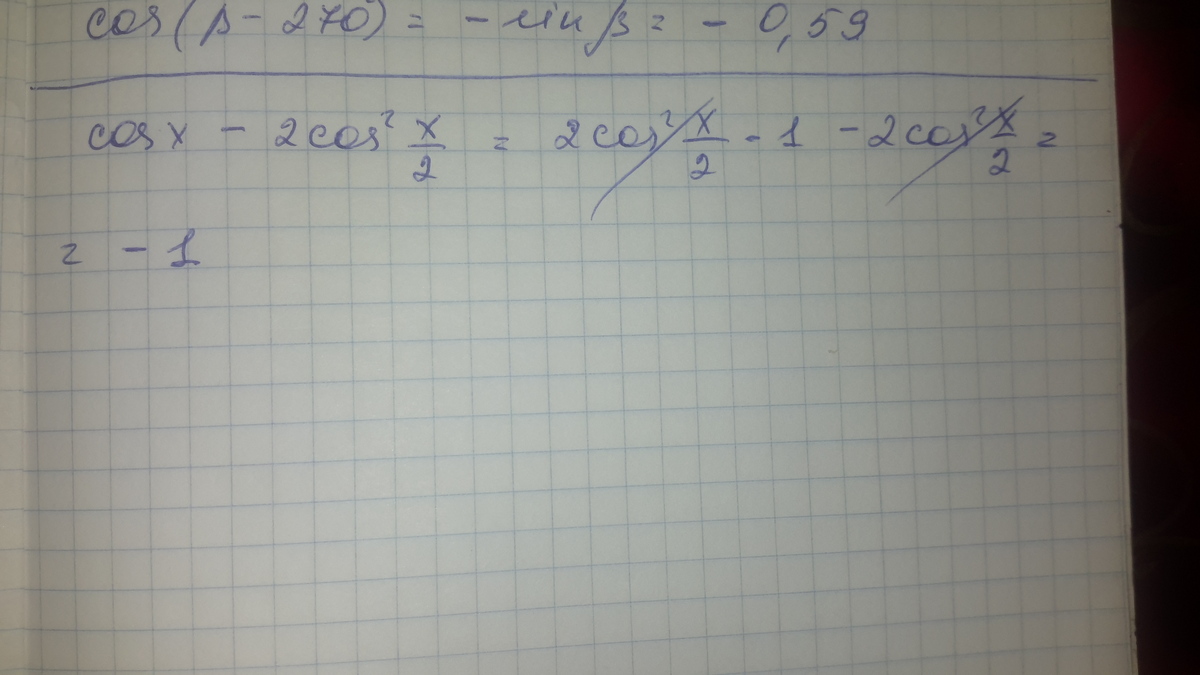 cos(β - 270°) = - sin β = - 0,59
cos x - 2cos² x/2 = 2cos² x/2 - 1 - 2cos² x/2 =
= - 1